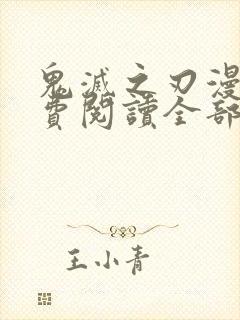 鬼滅之刃漫
費閱讀全部
王小青